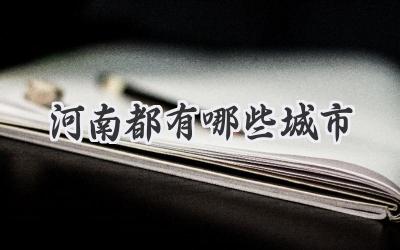 河南都有哪些城市